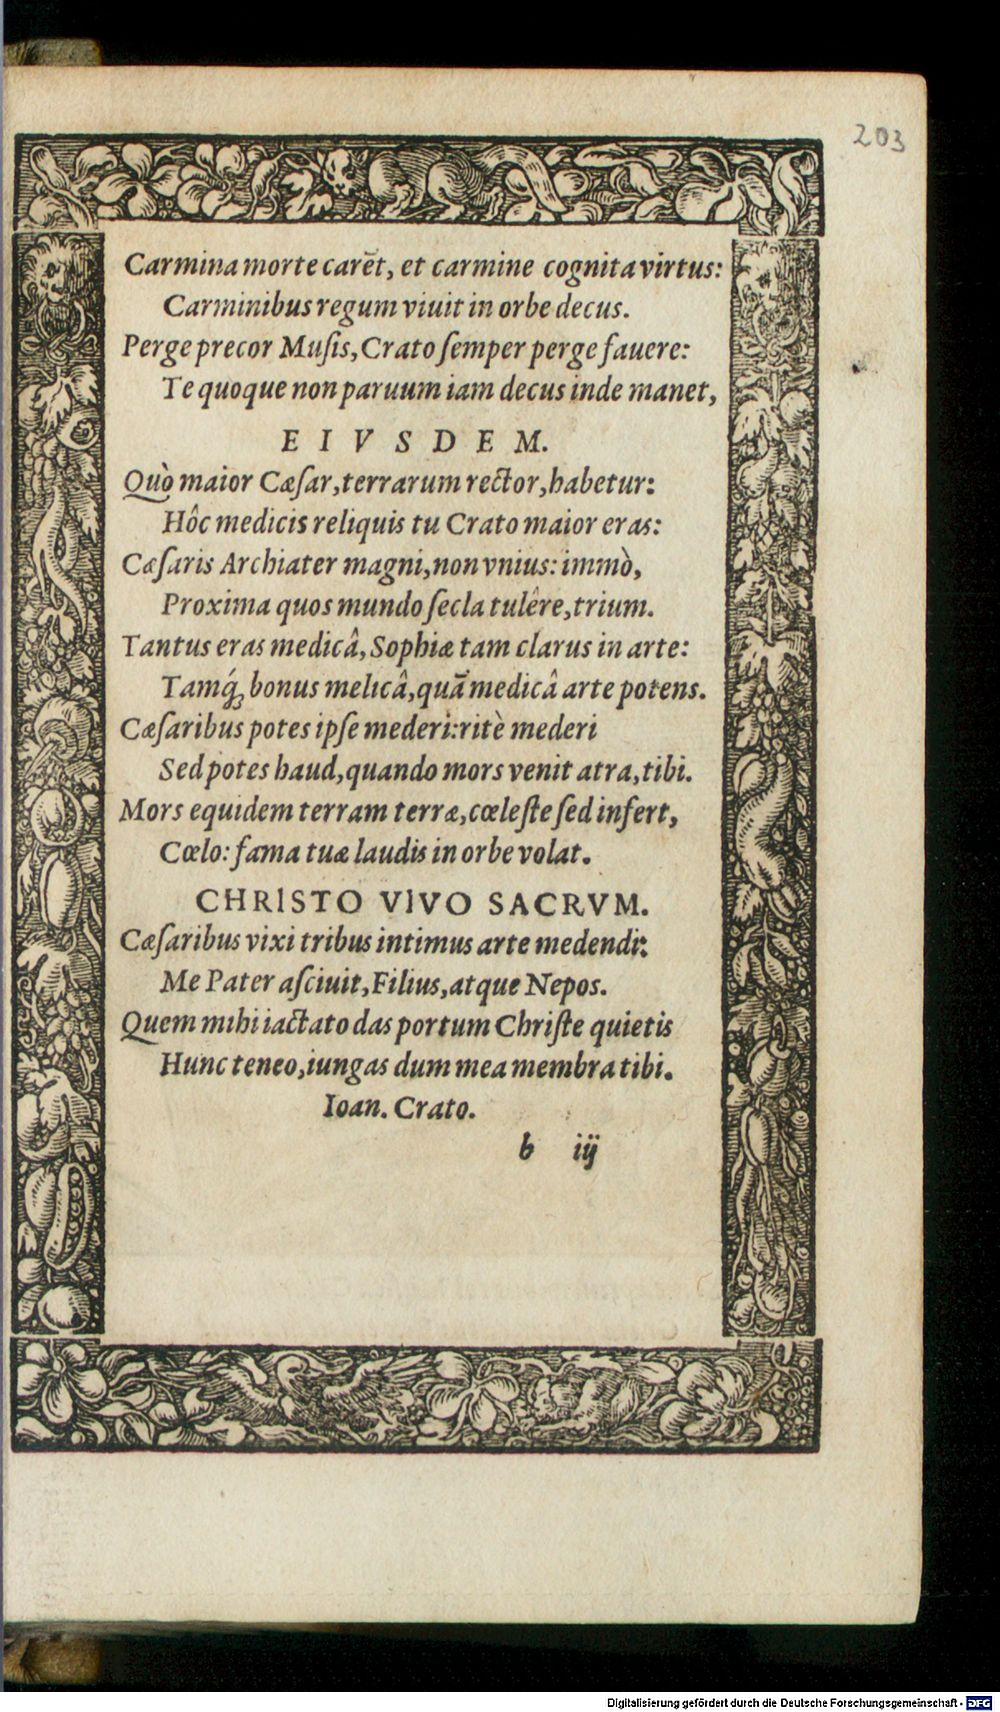 203
Carmina morte carēt, et carmine cognita virtus:
Carminibus regum viuit in orbe decus.
Perge precor Muſis, Crato ſemper perge fauere:
Te quoque non paruum iam decus inde manet,
EIVSDEM.
Quò maior Cæſar, terrarum rector, habetur:
Hôc medicis reliquis tu Crato maior eras:
Cæſaris Archiater magni, non vnius: immò,
Proxima quos mundo ſecla tulêre, trium.
Tantus eras medicâ, Sophiæ tam clarus in arte:
Tamq́ꝫ bonus melicâ, quā medicâ arte potens.
Cæſaribus potes ipſe mederi: ritè mederi
Sed potes haud, quando mors venit atra, tibi.
Mors equidem terram terræ, cœleſte ſed infert,
Cœlo: fama tuæ laudis in orbe volat.
CHRISTO VIVO SACRVM.
Cæſaribus vixi tribus intimus arte medendi:
Me Pater aſciuit, Filius, atque Nepos.
Quem mihi iactato das portum Chriſte quietis
Hunc teneo, iungas dum mea membra tibi.
Ioan. Crato.
b iij
Digitalisierung gefördert durch die Deutsche Forschungsgemeinschaft - DFG